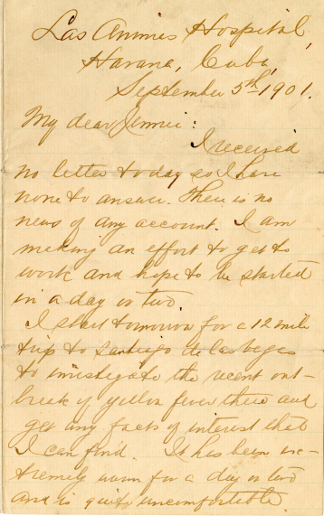 Las Animas Hospital,
Havana, Cuba,
September 5th, 1901.
My dear Jennie:
I received
no letter today so I have
none to answer. There is no
news of any account. I am
making an effort to get to
work and hope to be started
in a day or two.
I start tomorrow for a 12 mile
trip to Santiago de las Vegas
to investigate the recent out-
break of yellow fever there and
get any facts of interest that
I can find. It has been ex-
tremely warm for a day or two
and is quite uncomfortable.